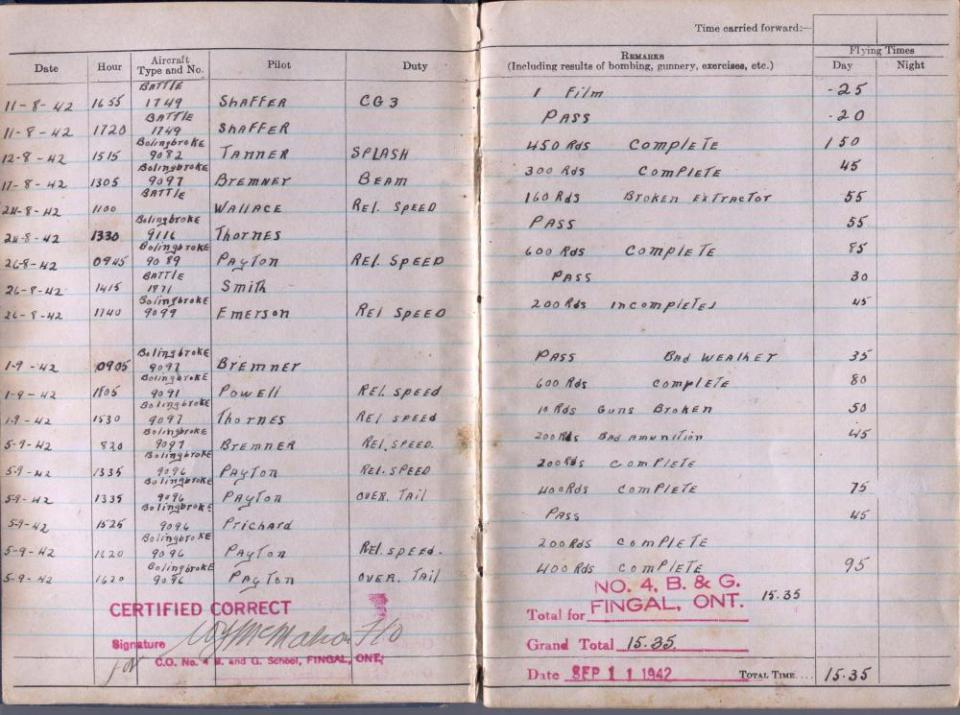 Time carried forward:—
Date Hour Aircraft Type and No. Pilot Duty REMARKS (Including results of bombing, gunnery, exercises, etc.) Flying Times Day Night
11-8-42 1655 BATTLE 1749 SHAFFER CG3 1 Film -25
11-8-42 1720 BATTLE 1749 SHAFFER PASS -20
12-8-42 1515 Bolingbroke 9082 TANNER SPLASH 450 Rds COMPLETE 150
17-8-42 1305 Bolingbroke 9097 BREMNER BEAM 300 Rds COMPLETE 45
-8-42 1100 BATTLE WALLACE REL. SPEED 160 Rds BROKEN EXTRACTOR 55
-8-42 1330 Bolingbroke 9116 THORNES PASS 55
26-8-42 0945 Bolingbroke 9089 PAYTON REL. SPEED 600 Rds COMPLETE 85
26-8-42 1415 BATTLE SMITH PASS 30
26-8-42 1740 Bolingbroke 9099 EMERSON REL SPEED 200 Rds INCOMPLETED 45
1-9-42 0905 Bolingbroke 9097 BREMNER PASS BAD WEATHER 35
1-9-42 Bolingbroke 9091 POWELL REL. SPEED 600 Rds COMPLETE 80
1-9-42 1530 Bolingbroke 9097 THORNES REL SPEED 10 Rds GUNS BROKEN 50
5-9-42 820 Bolingbroke 9097 BREMNER REL. SPEED. 200 Rds BAD AMUNITION 45
5-9-42 1335 Bolingbroke 9096 PAYTON REL. SPEED 200 Rds COMPLETE
5-9-42 1335 Bolingbroke 9096 PAYTON OVER. TAIL 400 Rds COMPLETE 75
5-9-42 1525 Bolingbroke 9096 PRICHARD PASS 45
5-9-42 1620 Bolingbroke 9096 PAYTON REL. SPEED. 200 Rds COMPLETE
5-9-42 1620 Bolingbroke 9096 PAYTON OVER. TAIL 400 Rds COMPLETE 95
CERTIFIED CORRECT
Signature McMahon F/O
for C.O. No. 4 B. and G. School, FINGAL, ONT.
NO. 4, B. & G.
Total for FINGAL, ONT. 15.35
Grand Total 15.35.
Date SEP 11 1942 TOTAL TIME.... 15.35